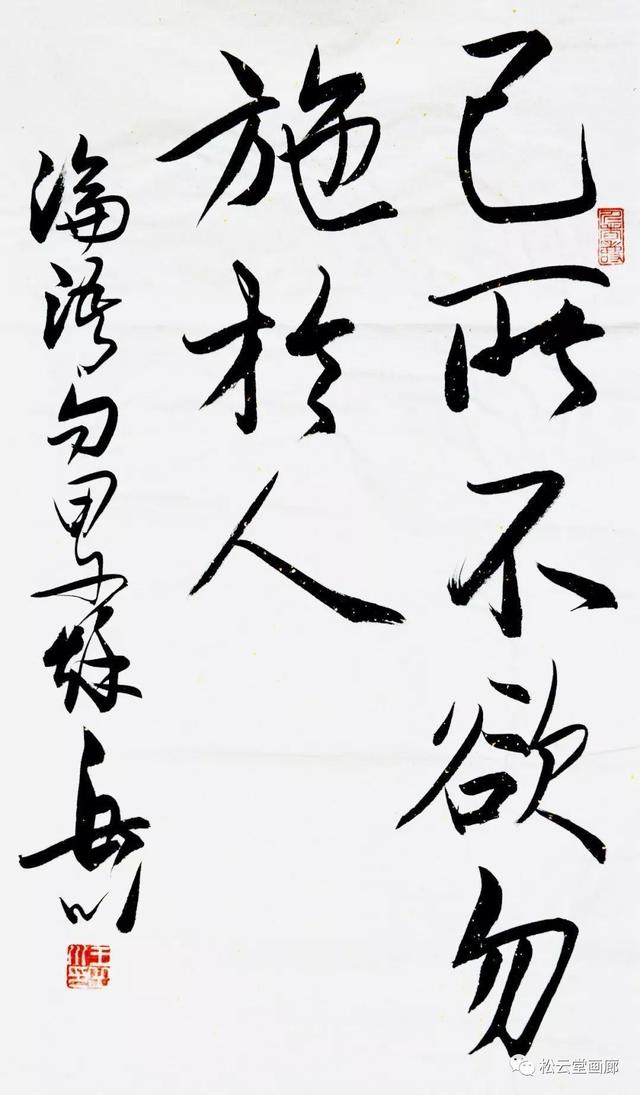 己所不欲勿
施於人
論語句甲午秋岳川
松云堂画廊